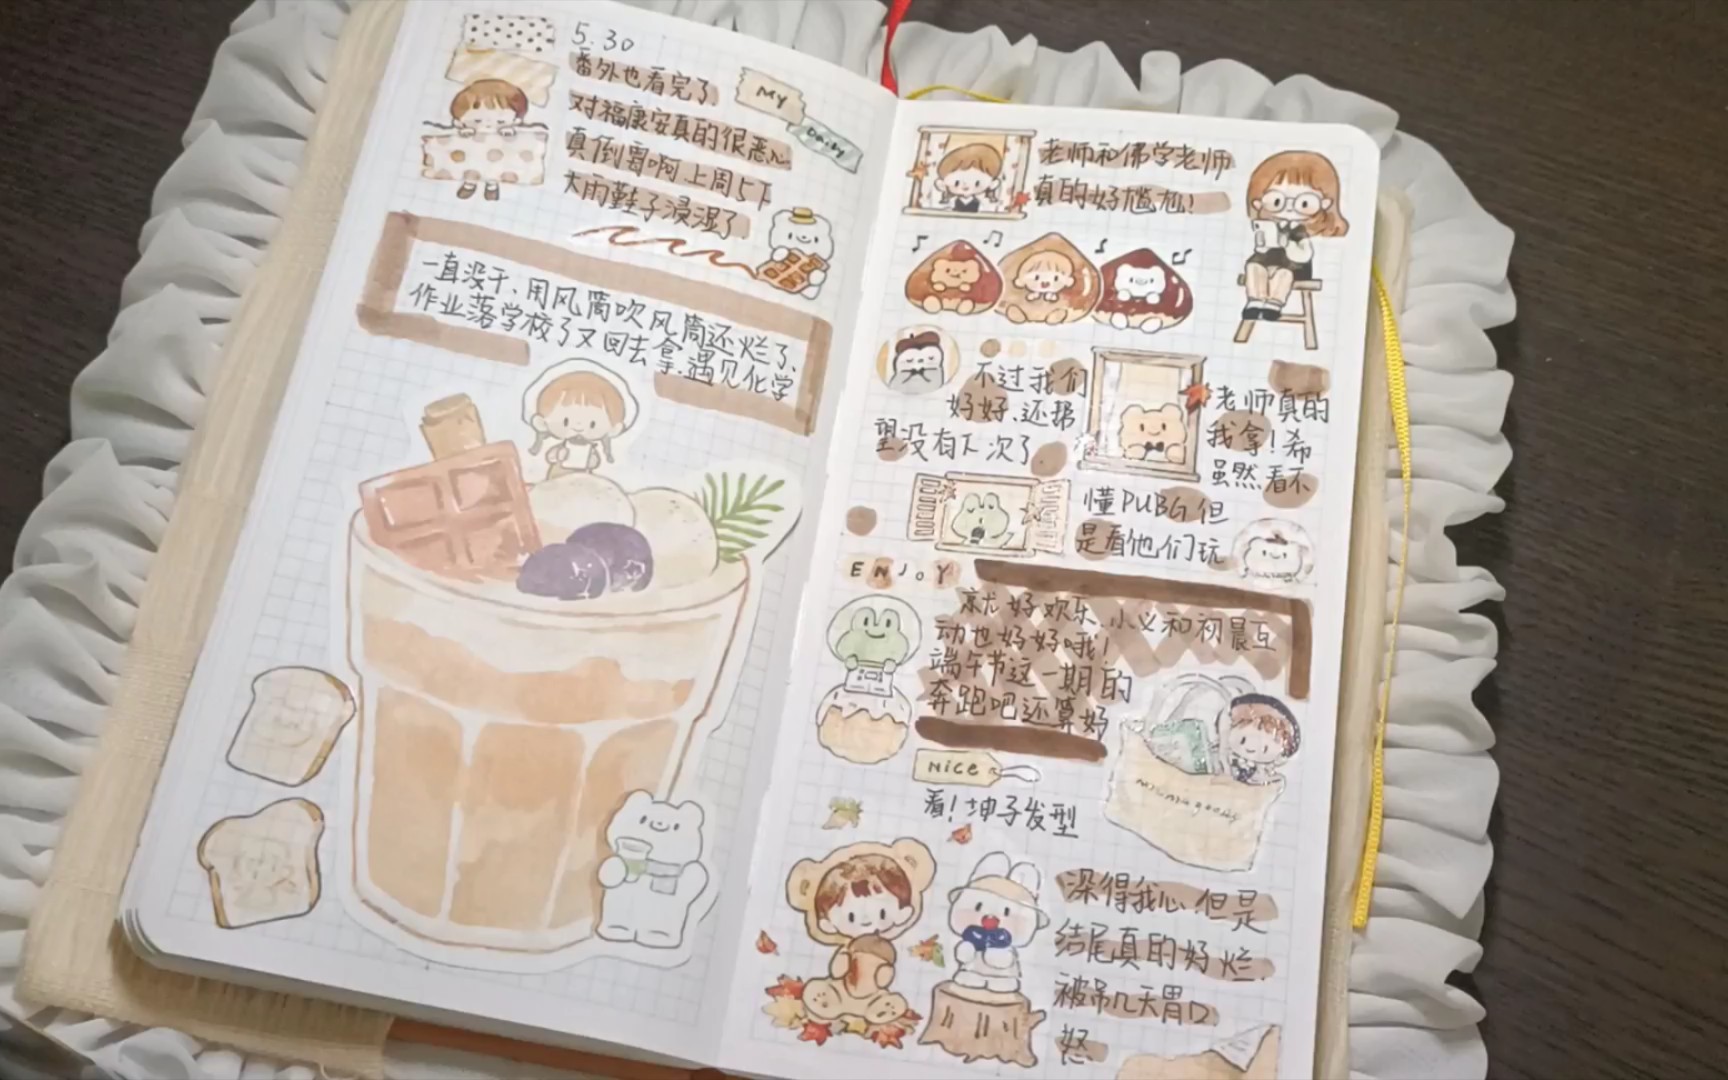 5.30
番外也看完了.
对福康安真的很恶心
真倒胃啊.上周5下
大雨鞋子浸湿了
MY
Daisy
一直没干、用风筒吹风筒还烂了、
作业落学校了又回去拿.遇见化学
老师和佛学老师
真的好尴尬!
不过我们
好好、还帮
老师真的
我拿!希
望没有下次了
虽然看不
懂PUBG但
是看他们玩
ENJOY
就好欢乐、小义和初晨互
动也好好哦!
端午节这一期的
奔跑吧还算好
Nice
看!坤子发型
深得我心.但是
结尾真的好烂.
被吊几天胃口
怒